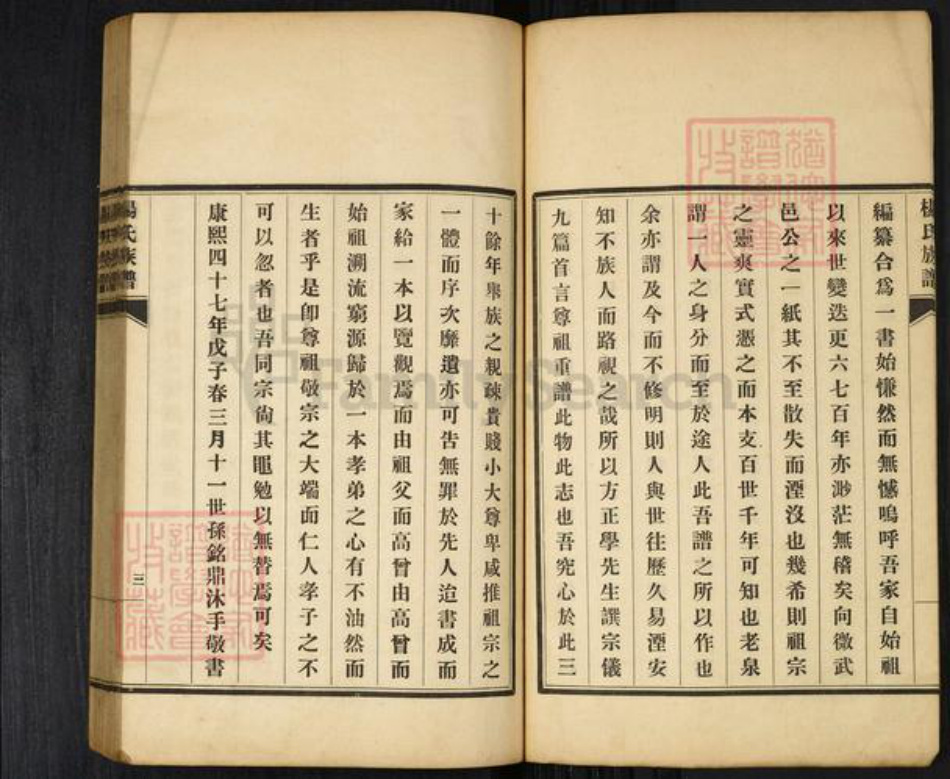 楊氏族譜
編纂合爲一書始慊然而無憾嗚呼吾家自始祖
以來世變迭更六七百年亦渺茫無稽矣向微武
邑公之一紙其不至散失而湮沒也幾希則祖宗
之靈爽實式憑之而本支百世千年可知也老泉
謂一人之身分而至於途人此吾譜之所以作也
余亦謂及今而不修明則人與世往歷久易湮安
知不族人而路視之哉所以方正學先生譔宗儀
九篇首言尊祖重譜此物此志也吾究心於此三
十餘年舉族之親疎貴賤小大尊卑咸推祖宗之
一體而序次靡遺亦可告無罪於先人迨書成而
家給一本以覽觀焉而由祖父而高曾由高曾而
始祖溯流窮源歸於一本孝弟之心有不油然而
生者乎是卽尊祖敬宗之大端而仁人孝子之不
可以忽者也吾同宗尙其黽勉以無替焉可矣
康熙四十七年戊子春三月十一世孫銘鼎沐手敬書
楊氏族譜
三
FamilySearch